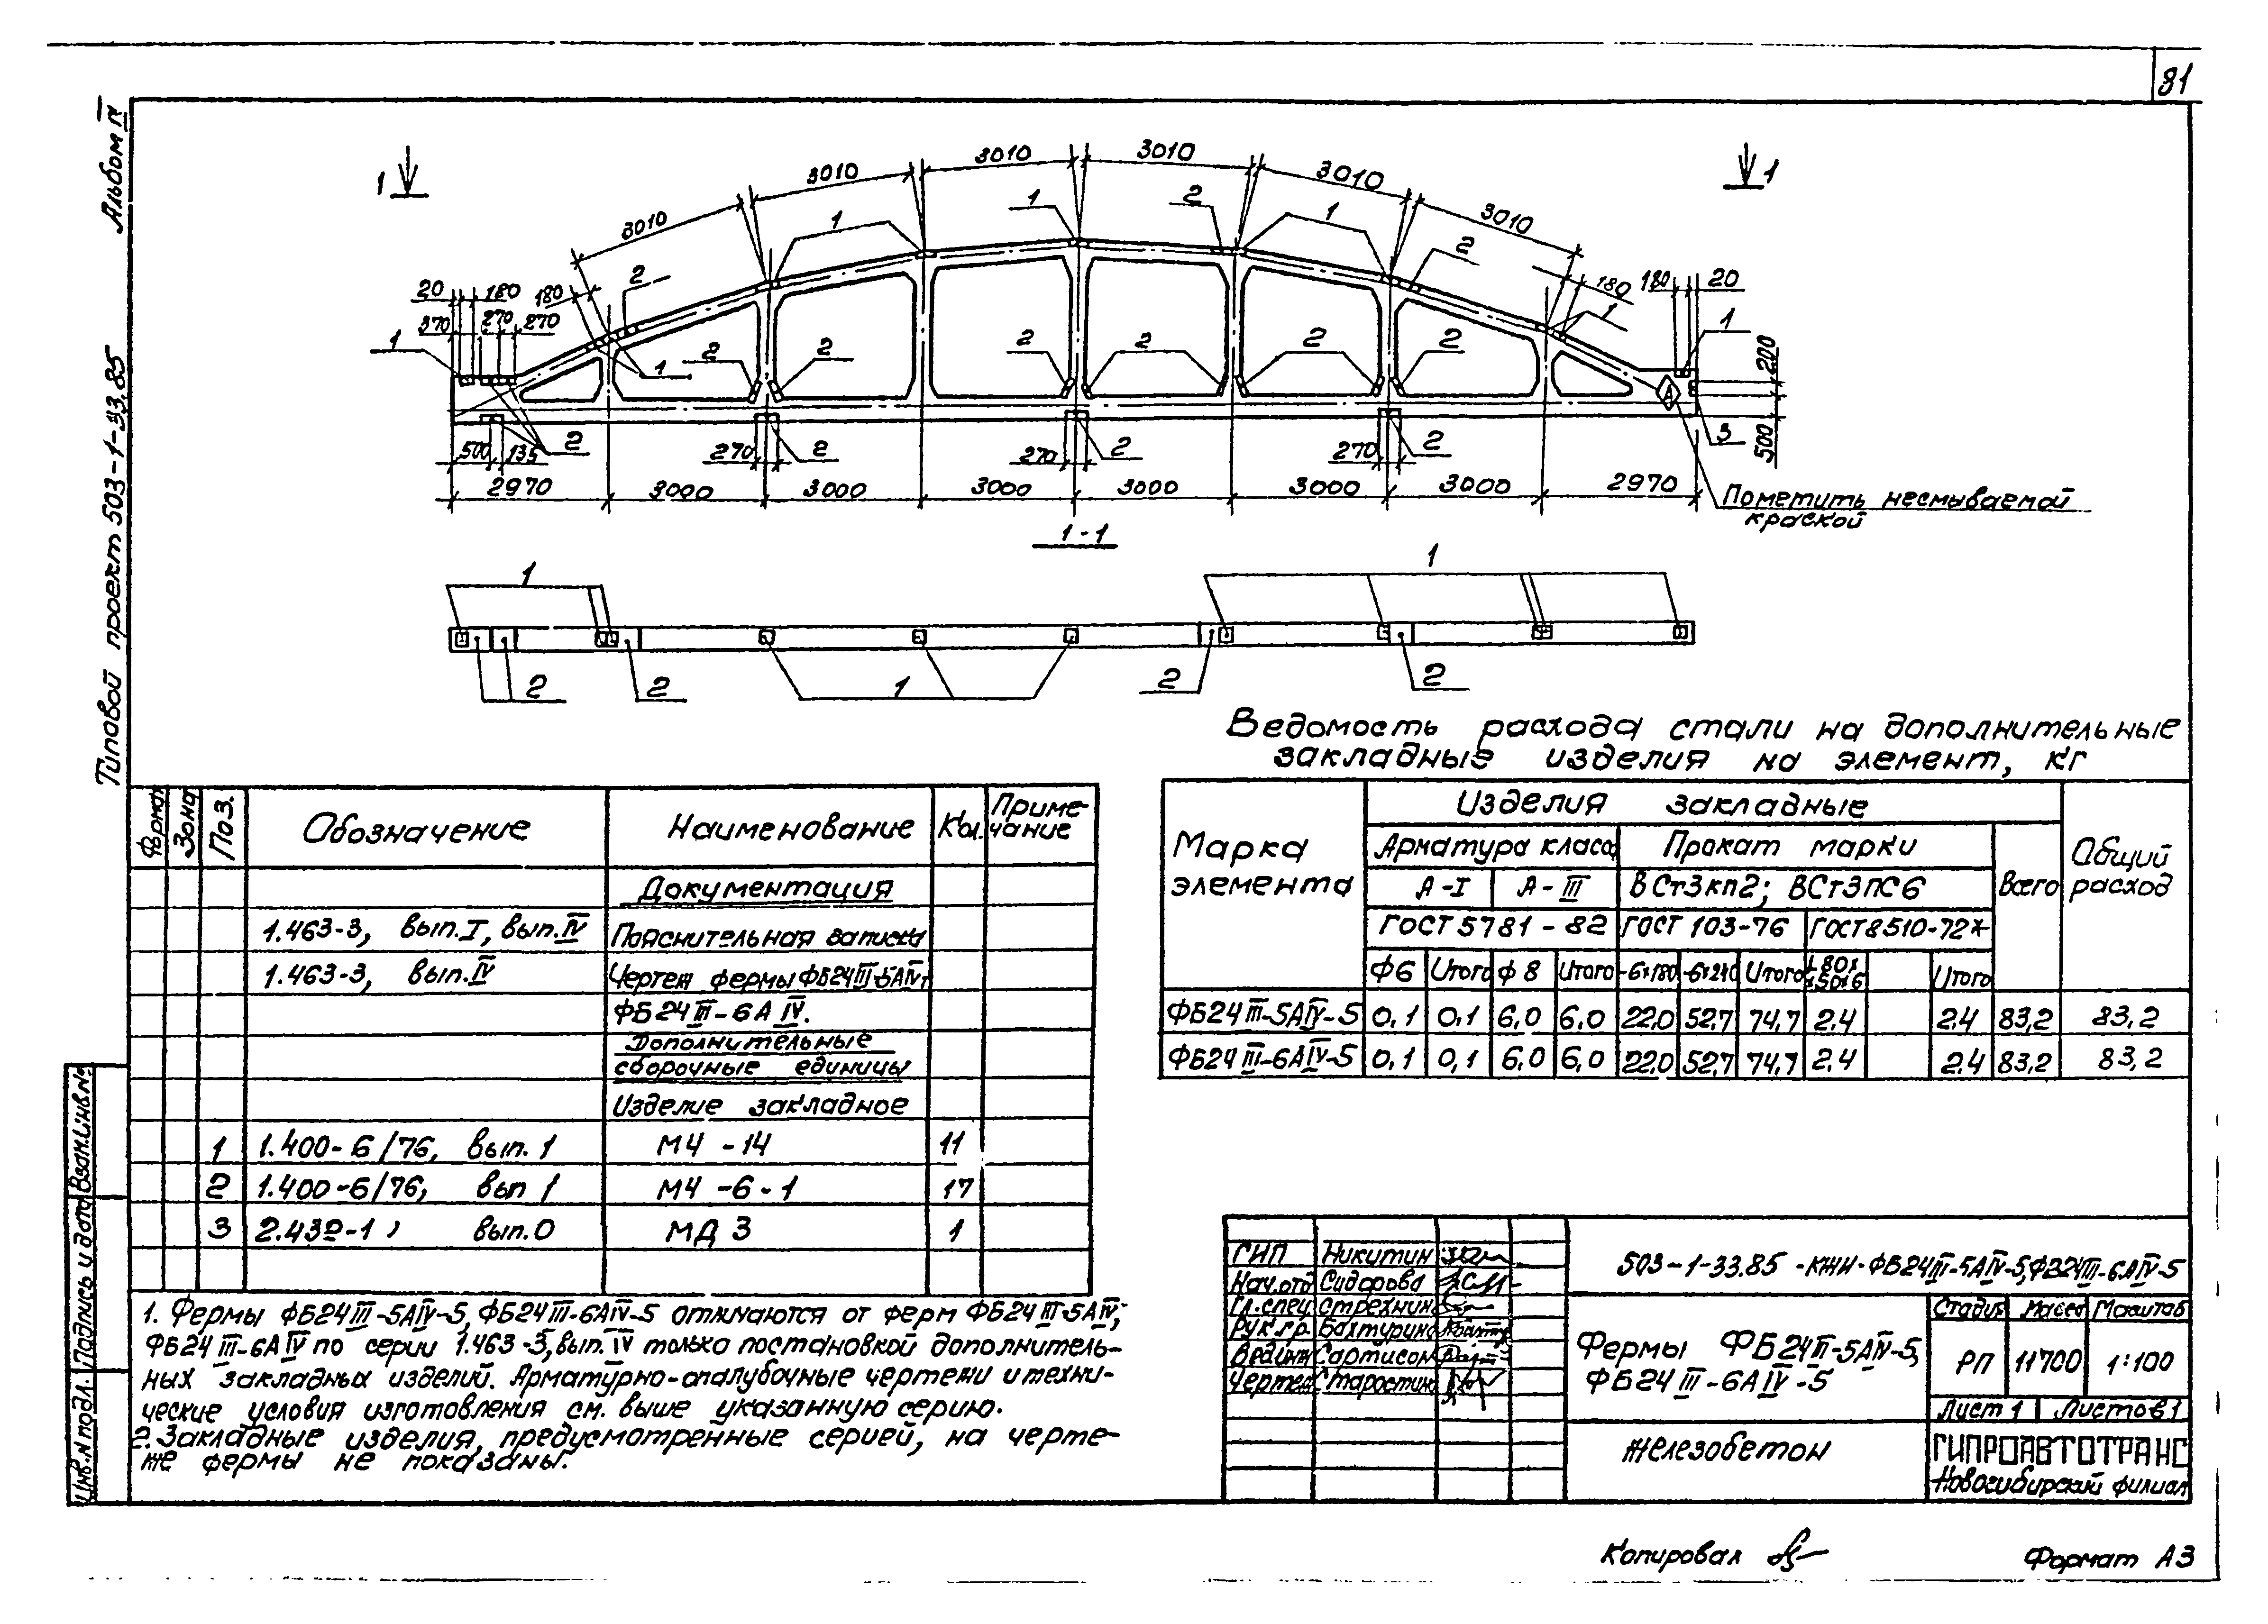 81
Альбом IV
Типовой проект 503-1-33.85
1
1
3010
3010
3010
3010
3010
3010
20
180
370
270
270
180
1
2
1
1
2
1
2
180
180
20
1
1
200
500
2
2
2
2
2
2
1
3
А
500
135
2
270
2
270
2
270
2
2970
3000
3000
3000
3000
3000
3000
2970
Пометить несмываемой
краской
1-1
1
1
2
2
1
2
2
Ведомость расхода стали на дополнительные
закладные изделия на элемент, кг
Марка элемента
Изделия закладные
Общий расход
Арматура класса
Прокат марки
Всего
А-I
А-III
ВСт3кп2; ВСт3пс6
ГОСТ 5781-82
ГОСТ 103-76
ГОСТ 8510-72*
Ф6 Итого Ф8 Итого -6x180 -6x240 Итого Итого
ФБ24III-5АIV-5 0,1 0,1 6,0 6,0 22,0 52,7 74,7 2,4 2,4 83,2 83,2
ФБ24III-6АIV-5 0,1 0,1 6,0 6,0 22,0 52,7 74,7 2,4 2,4 83,2 83,2
Формат Зона Поз. Обозначение Наименование Кол. Примечание
Документация
1.463-3, вып.I, вып.IV Пояснительная записка
1.463-3, вып.IV Чертеж фермы ФБ24III-5АIV,
ФБ24III-6АIV.
Дополнительные
сборочные единицы
Изделие закладное
1 1.400-6/76, вып. 1 М4-14 11
2 1.400-6/76, вып 1 М4-6-1 17
3 2.432-1, вып.0 МД 3 1
1. Фермы ФБ24III-5АIV-5, ФБ24III-6АIV-5 отличаются от ферм ФБ24III-5АIV,
ФБ24III-6АIV по серии 1.463-3, вып.IV только постановкой дополнитель-
ных закладных изделий. Арматурно-опалубочные чертежи и техни-
ческие условия изготовления см. выше указанную серию.
2. Закладные изделия, предусмотренные серией, на черте-
же фермы не показаны.
Взам.инв.№
Подпись и дата
Инв.N подл.
ГИП Никитин
Нач.отд Сидорова
Гл.спец Стрехнин
Рук.гр. Бахтурина
Вед.инж Сартисон
Чертеж. Старостин
503-1-33.85 -КЖИ-ФБ24III-5АIV-5,ФБ24III-6АIV-5
Фермы ФБ24III-5АIV-5,
ФБ24III-6АIV-5
Стадия Масса Масштаб
РП 11700 1:100
Лист 1 Листов 1
Железобетон
ГИПРОАВТОТРАНС
Новосибирский филиал
Копировал
Формат А3